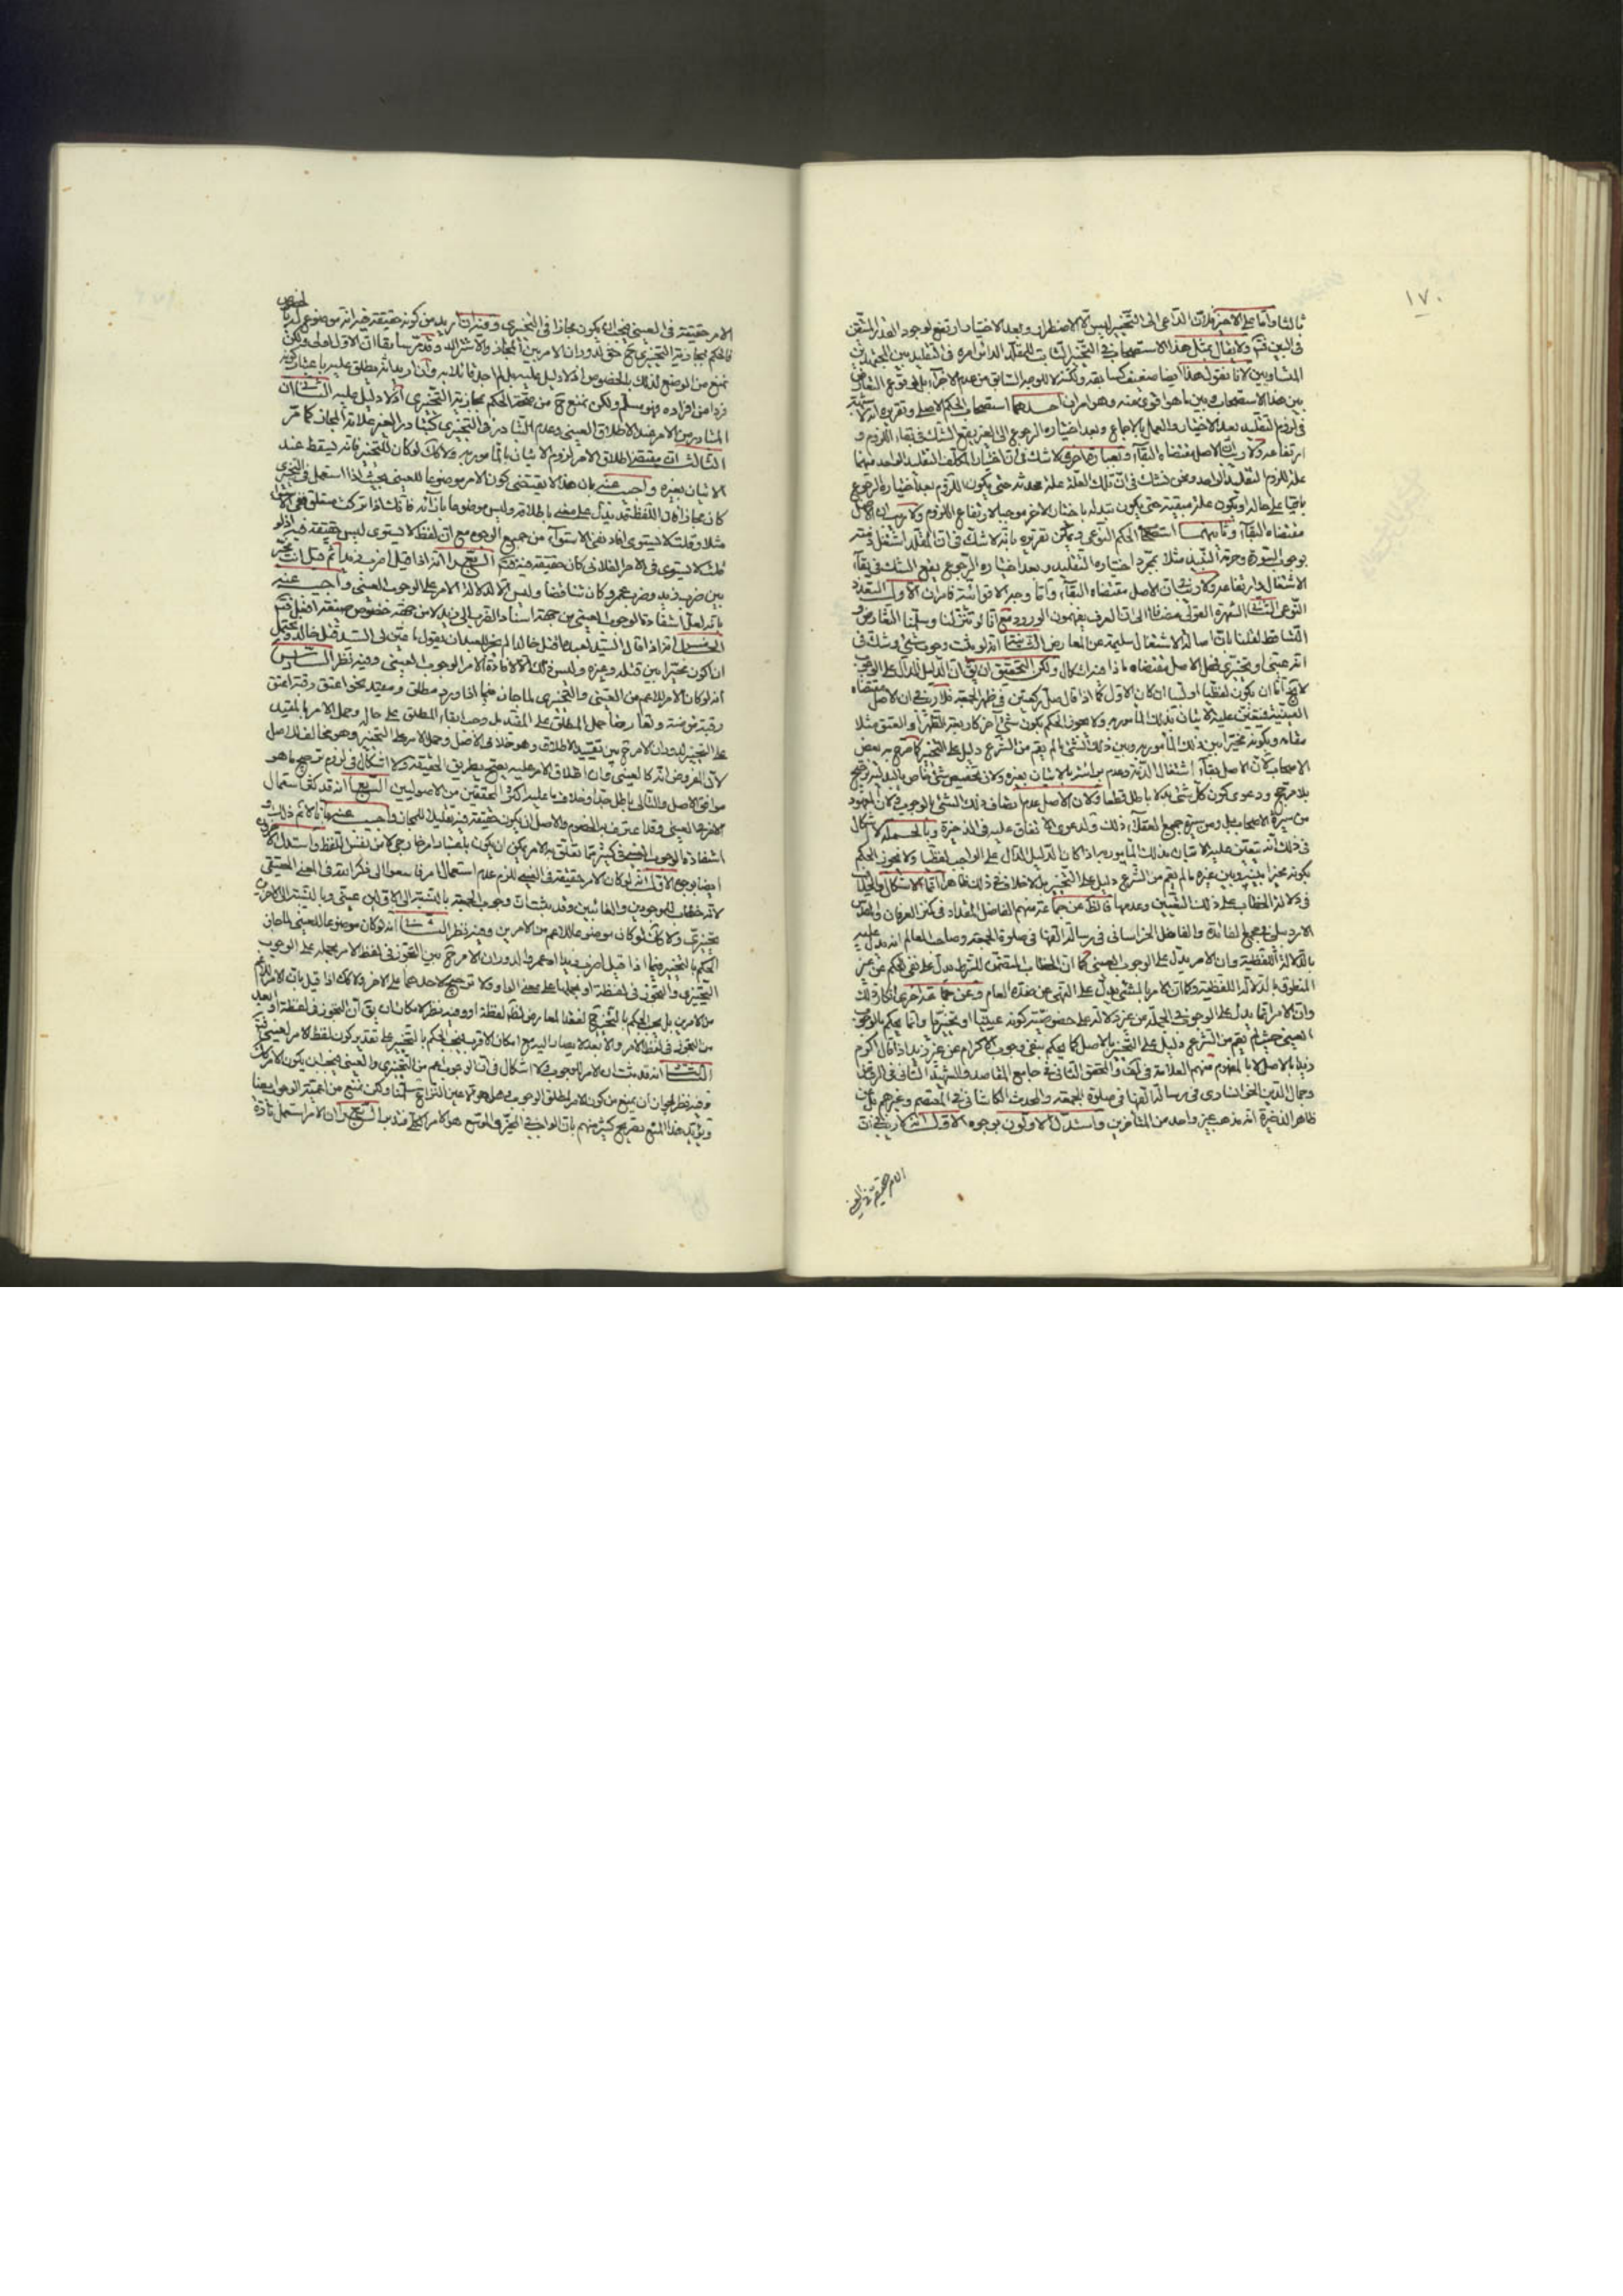 ١٧٠
ثالثا واما على الاخر فلان الداعى الى التخيير ليس الا الاضطرار وبعد الاختيار ارتفع لوجود القدر المتيقن
فى البين فتم ولا يقال بمثل هذا الاستصحاب فى التخيير الثابت للمقلد الدائر امره فى التقليد بين المجتهدين
المتساويين لانا نقول هذا ايضا ضعيف كسابقه ولكنه لا للوجه السابق من عدم الاجزاء بل لوقوع التعارض
بين هذا الاستصحاب وبين ما هو اقوى منه وهو امران احدهما استصحاب الحكم الاصلى وتقريره انه لا شبهة
فى لزوم التقليد بعد الاختيار والعمل بالاجماع وبعد اختياره الرجوع الى الغير يقع الشك فى بقاء اللزوم و
ارتفاعه ولا ريب ان الاصل مقتضاه البقاء وبعبارة اخرى لا شك فى ان اختيار المكلف التقليد لواحد منهما
علة للزوم التقليد لواحد ونحن نشك فى ان تلك العلة علة محدثة حتى يكون اللزوم بعد اختياره الرجوع
باقيا على حاله او يكون علة مبقية حتى يكون تبدله باختيار الاخر موجبا لارتفاع اللزوم ولا ريب ان الاصل
مقتضاه البقاء وثانيهما استصحاب الحكم الفرعى ويمكن تقريره بانه لا شك فى ان المقلد اشتغل ذمته
بوجوب السورة وحرمة النبيذ مثلا بمجرد اختياره التقليد وبعد اختياره الرجوع يقع الشك فى بقاء
الاشتغال وارتفاعه ولا ريب ان الاصل مقتضاه البقاء واما وجه الاقوائية فامران الاول التعدد
النوعى الثانى الشهرة العقولى مضافا الى ان العرف يفهمون الورود مع انا لو تنزلنا وسلمنا التعارض و
التساقط لقلنا بان اصالة الاشتغال سليمة عن المعارض الثانى انه لو ثبت وجوب شىء وشك فى
انه عينى او تخييرى فهل الاصل مقتضاه ماذا فيه اشكال ولكن التحقيق ان يق ان الدليل الدال على الوجوب
لا يخ اما ان يكون لفظيا او لبيا ان كان الاول كما اذا قال صل ركعتين فى ظهر الجمعة فلا ريب فى ان الاصل مقتضاه
العينية فيتعين عليه الاتيان بذلك المأمور به ولا يجوز الحكم بكون شىء آخر كاربعة الظهر او العتق مثلا
مقامه وبكونه مخيرا بين ذلك المأمور به وبين ذلك الشىء ما لم يقم من الشرع دليل على التخيير كما صرح به بعض
الاصحاب لان الاصل بقاء اشتغال الذمة وعدم براءته بالاتيان بغيره ولان تخصيص شىء خاص بالبدلية ترجيح
بلا مرجح ودعوى كون كل شىء بدلا باطل قطعا ولان الاصل عدم اتصاف ذلك الشىء بالوجوب ولان المعهود
من سيرة الاصحاب بل ومن سيرة جميع العقلاء ذلك ولدعوى الاتفاق عليه فى الذخيرة وبالجملة لا اشكال
فى ذلك انه يتعين عليه الاتيان بذلك المأمور به اذا كان الدليل الدال على الواجب لفظيا ولا يجوز الحكم
بكونه مخيرا بينه وبين غيره ما لم يقم من الشرع دليل على التخيير بل لا خلاف فى ذلك ظاهرا انما الاشكال والخلاف
فى دلالة الخطاب على ذلك التعيين وعدمها فالظ عن جماعة منهم الفاضل المقداد فى كنز العرفان والمقدس
الاردبيلى فى مجمع الفائدة والفاضل الخراسانى فى رسالة الفها فى صلوة الجمعة وصاحب المعالم انه يدل عليه
بالدلالة اللفظية وان الامر يدل على الوجوب العينى كما ان الخطاب المتضمن للشرط يدل على نفى الحكم عن غير
المنطوق بالدلالة اللفظية وكما ان الامر بالشىء يدل على النهى عن ضده العام وعن جماعة اخرى انكار ذلك
وان الامر انما يدل على الوجوب فى الجملة من غير دلالة على خصوصية كونه عينيا او تخييريا وانما يحكم بالوجوب
العينى حيث لم يقم من الشرع دليل على التخيير بالاصل كما يحكم بنفى وجوب الاكرام عن غير زيد اذا قال اكرم
زيدا بالاصل لا بالمفهوم منهم العلامة فى كف والمحقق الثانى فى جامع المقاصد والشهيد الثانى فى الروضة
وجمال الدين الخوانسارى فى رسالة الفها فى صلوة الجمعة والمحدث الكاشانى فى المعتصم وغيرهم بل عن
ظاهر الذخيرة انه مذهب غير واحد من المتأخرين واستدل الاولون بوجوه الاول انه لا ريب فى ان
الامر حقيقة فى العينى
الامر حقيقة فى العينى فيجب ان يكون مجازا فى التخييرى وفيه ان اريد من كونه حقيقة فيه انه موضوع له بالخصوص
فالحكم بمجازية التخييرى ح حق لدوران الامر بين المجاز والاشتراك وقد مر سابقا ان الاول اولى ولكن
نمنع من الوضع لذلك بالخصوص اذ لا دليل عليه بل لم اجد قائلا به وان اريد انه يطلق عليه باعتبار كونه
فردا من افراده فهو مسلم ولكن نمنع ح من صحة الحكم بمجازية التخييرى اذ لا دليل عليه الثانى ان
المتبادر من الامر عند الاطلاق العينى وعدم التبادر فى التخييرى كتبادر الغير علامة المجاز كما مر
الثالث ان مقتضى اطلاق الامر لزوم الاتيان بالمأمور به ولا كك لو كان للتخيير فانه يسقط عند
الاتيان بغيره واجيب عنه بان هذا لا يقتضى كون الامر موضوعا للعينى بحيث اذا استعمل فى التخييرى
كان مجازا لان اللفظ قد يدل على معنى باطلاقه وليس موضوعا بازائه
مثلا وقلت لا يستوى افاد نفى الاستواء من جميع الوجوه مع ان لفظ لا يستوى ليس حقيقة فيه اذ لو
قلت لا يستوى فى الامر الفلانى كان حقيقة فيه فتم الرابع انه اذا قيل اضرب زيدا ثم قيل انت مخير
بين ضرب زيد وضرب عمرو كان تناقضا وليس الا لدلالة الامر على الوجوب العينى واجيب عنه
بانه لعل استفادة الوجوب العينى من جهة اسناد الضرب الى زيد لا من جهة خصوص صيغة افعل فتم
الخامس انه اذا قال السيد لعبده اقتل خالدا لم يجز للعبد ان يقول
ان اكون مخيرا بين قتله وغيره وليس ذلك الا لافادة الامر الوجوب العينى وفيه نظر السادس
انه لو كان الامر للاعم من العينى والتخييرى لما جاز فيما اذا ورد مطلق ومقيد نحو اعتق رقبة اعتق
رقبة مؤمنة وتعارضا حمل المطلق على المقيد بل وجب ابقاء المطلق على حاله وحمل الامر بالمقيد
على التخيير لدوران الامر ح بين تقييد الاطلاق وهو خلاف الاصل وحمل الامر على التخيير وهو مخالف للاصل
لان الفرض انه كالعينى فان اطلاق الامر عليه يصح بطريق الحقيقة ولا اشكال فى لزوم ترجيح ما هو
موافق الاصل والتالى باطل جدا وخلاف ما عليه اكثر المحققين من الاصوليين السابع انه قد كثر استعمال
الامر فى العينى وقد اعترف به الخصوم والاصل ان يكون حقيقة فيه تقليلا للمجاز واجيب عنه بانا لا نم ذلك و
استفادة الوجوب العينى فى كثير مما تعلق به الامر يمكن ان يكون باعتبار امر خارجى لا من نفس اللفظ واستدل الاخرون
ايضا بوجوه الاول انه لو كان الامر حقيقة فى العينى للزم عدم استعمال امر فاسعوا الى ذكر الله فى المعنى الحقيقى
لانه خطاب للموجودين والغائبين وقد ثبت ان وجوب الجمعة بالنسبة الى الاولين عينى وبالنسبة الى الاخرين
تخييرى ولا كك لو كان موضوعا للاعم من الامرين وفيه نظر الثانى انه لو كان موضوعا للعينى لما جاز
الحكم بالتخيير فيما اذا قيل اضرب زيدا او عمروا لدوران الامر ح بين التجوز فى لفظ الامر بحمله على الوجوب
التخييرى والتجوز فى لفظة او بحملها على معنى الواو ولا ترجيح لاحدهما على الاخر ولا كك اذا قيل بان الامر للاعم
من الامرين بل يجب الحكم بالتخيير ح لفقد المعارض لظهور لفظة او وفيه نظر لامكان ان يق ان التجوز فى لفظة او ابعد
من التجوز فى لفظ الامر والابعد لا يصار اليه مع امكان الاقرب فيجب الحكم بالتخيير على تقدير كون لفظ الامر لعينى فتم
الثالث انه قد ثبت ان الامر للوجوب ولا اشكال فى ان الوجوب اعم من التخييرى والعينى فيجب ان يكون الامر كك
وفيه نظر لجواز ان يمنع من كون الامر لمطلق الوجوب بل هو عين النزاع سلمنا ولكن نمنع من اعمية الوجوب
ويؤيد هذا المنع تصريح كثير منهم بان الواجب فى المخير والموسع هو الامر الكلى فتدبر الرابع ان الامر استعمل تارة